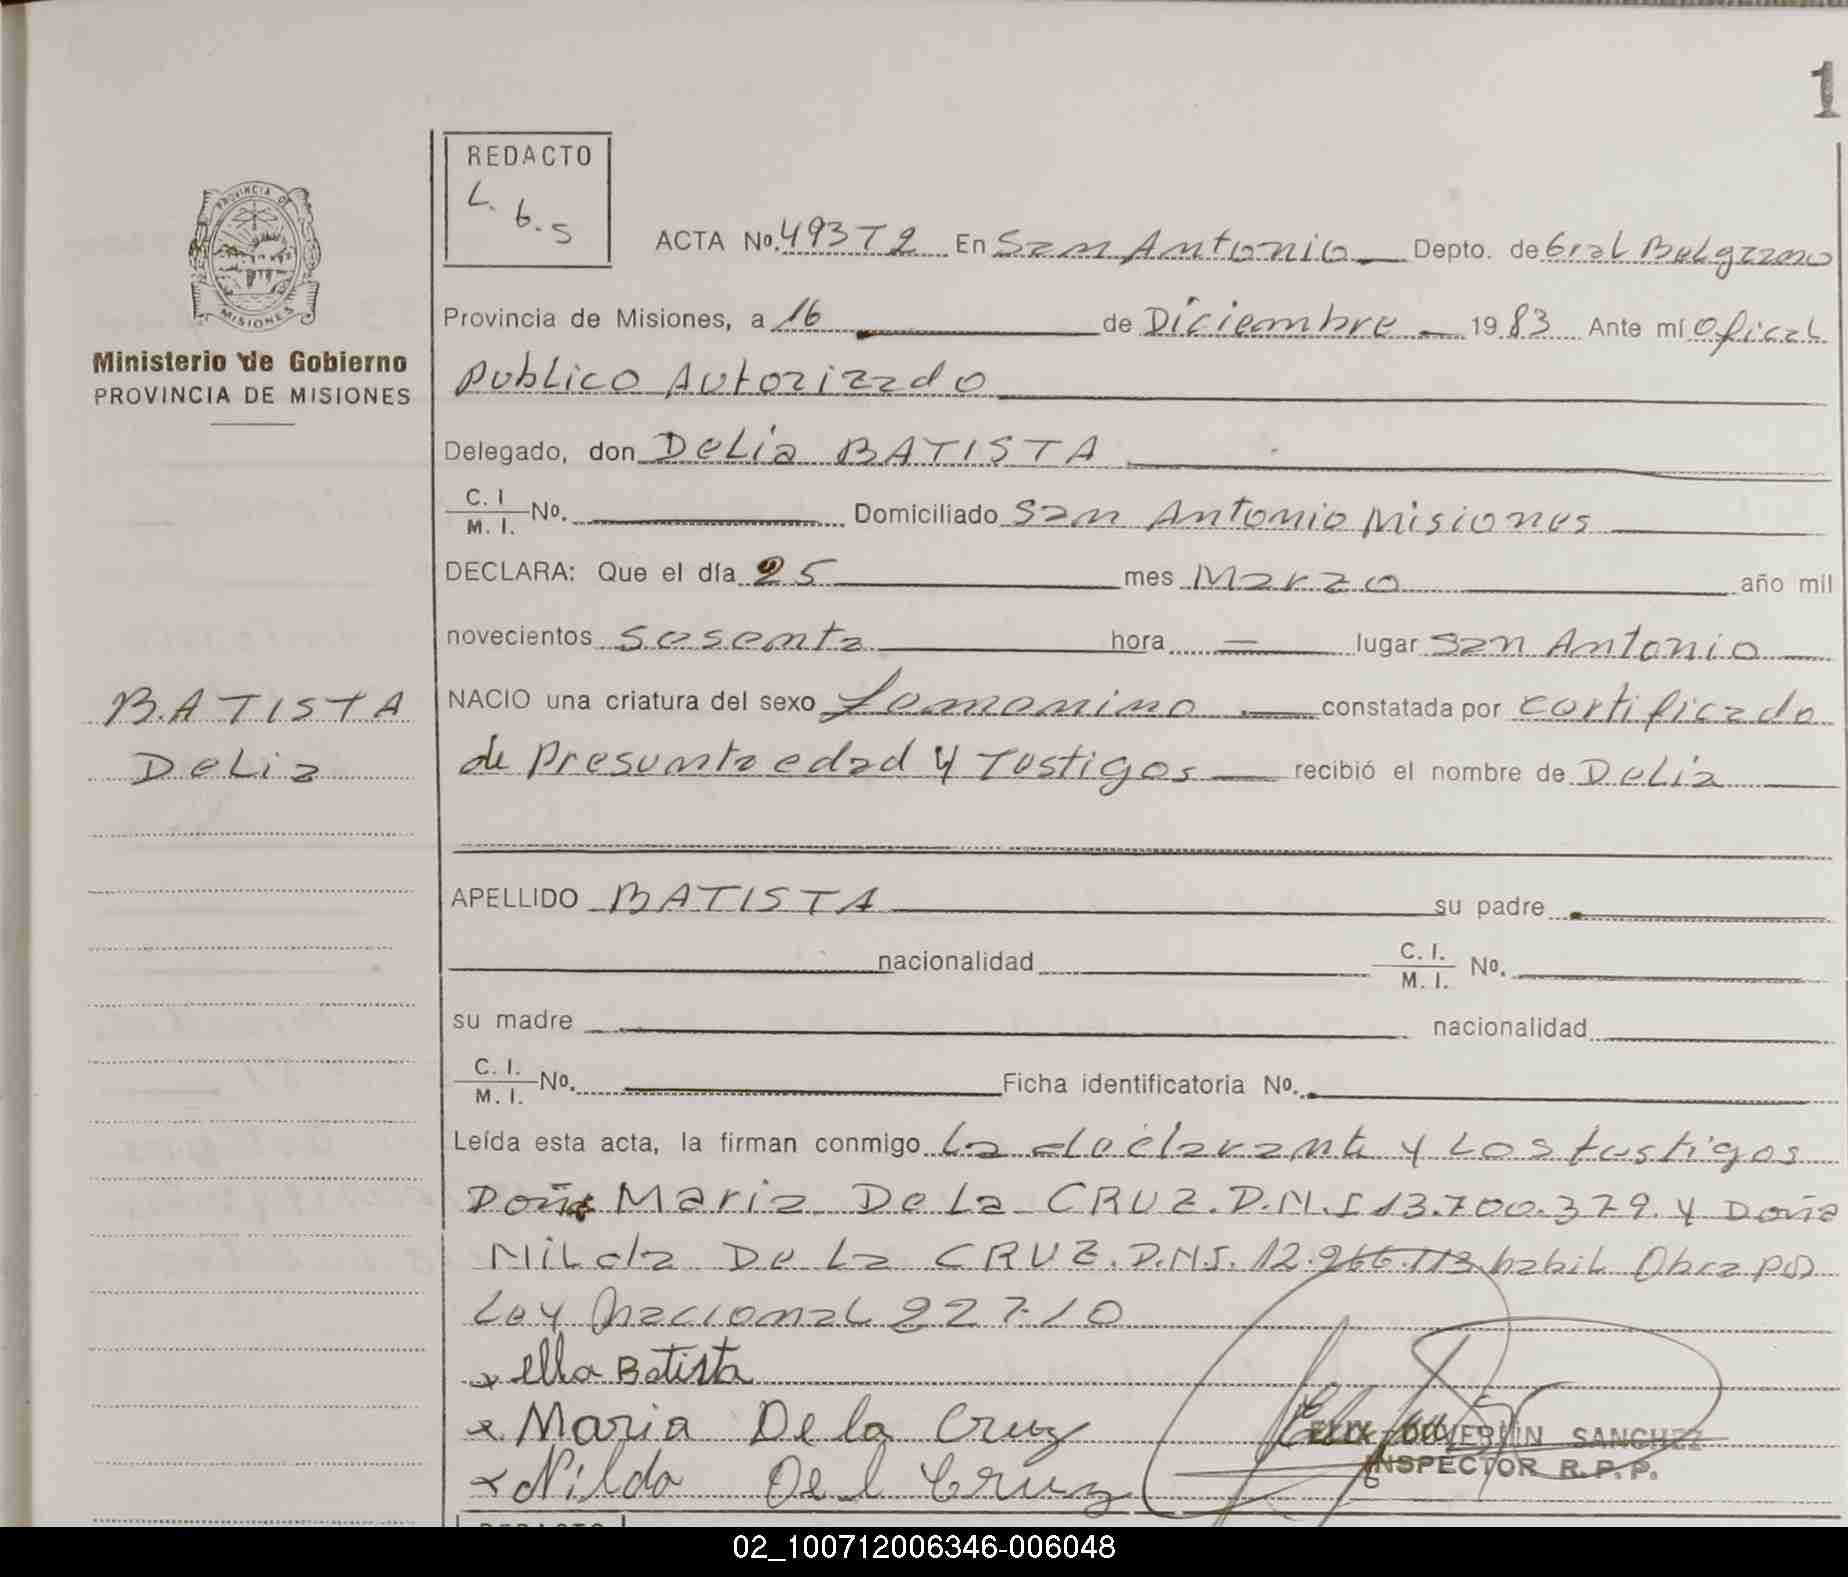 1
REDACTO
L. b. s
PROVINCIA DE
MISIONES
Ministerio de Gobierno
PROVINCIA DE MISIONES
ACTA No. 493T2 En San Antonio Depto. de Gral Belgrano
Provincia de Misiones, a 16 de Diciembre 1983 Ante mí Oficial
Publico Autorizado
Delegado, don Delia BATISTA
C. I. / M. I. No. Domiciliado San Antonio Misiones
DECLARA: Que el día 25 mes Marzo año mil
novecientos sesenta hora = lugar San Antonio
BATISTA
Delia
NACIO una criatura del sexo femenino constatada por certificado
de Presunta edad y Testigos recibió el nombre de Delia
APELLIDO BATISTA su padre
nacionalidad C. I. / M. I. No.
su madre nacionalidad
C. I. / M. I. No. Ficha identificatoria No.
Leída esta acta, la firman conmigo la declarante y Los testigos
Doña Maria De La CRUZ. D.N.I 13.700.379. y Doña
Nilda De La CRUZ. D.N.I. 12.966.113. habil Obra por
Ley Nacional 22710
x ella Batista
x Maria De la Cruz
x Nilda De l Cruz
FELIX DUVERLIN SANCHEZ
INSPECTOR R. P. P.
REDACTO
02_100712006346-006048